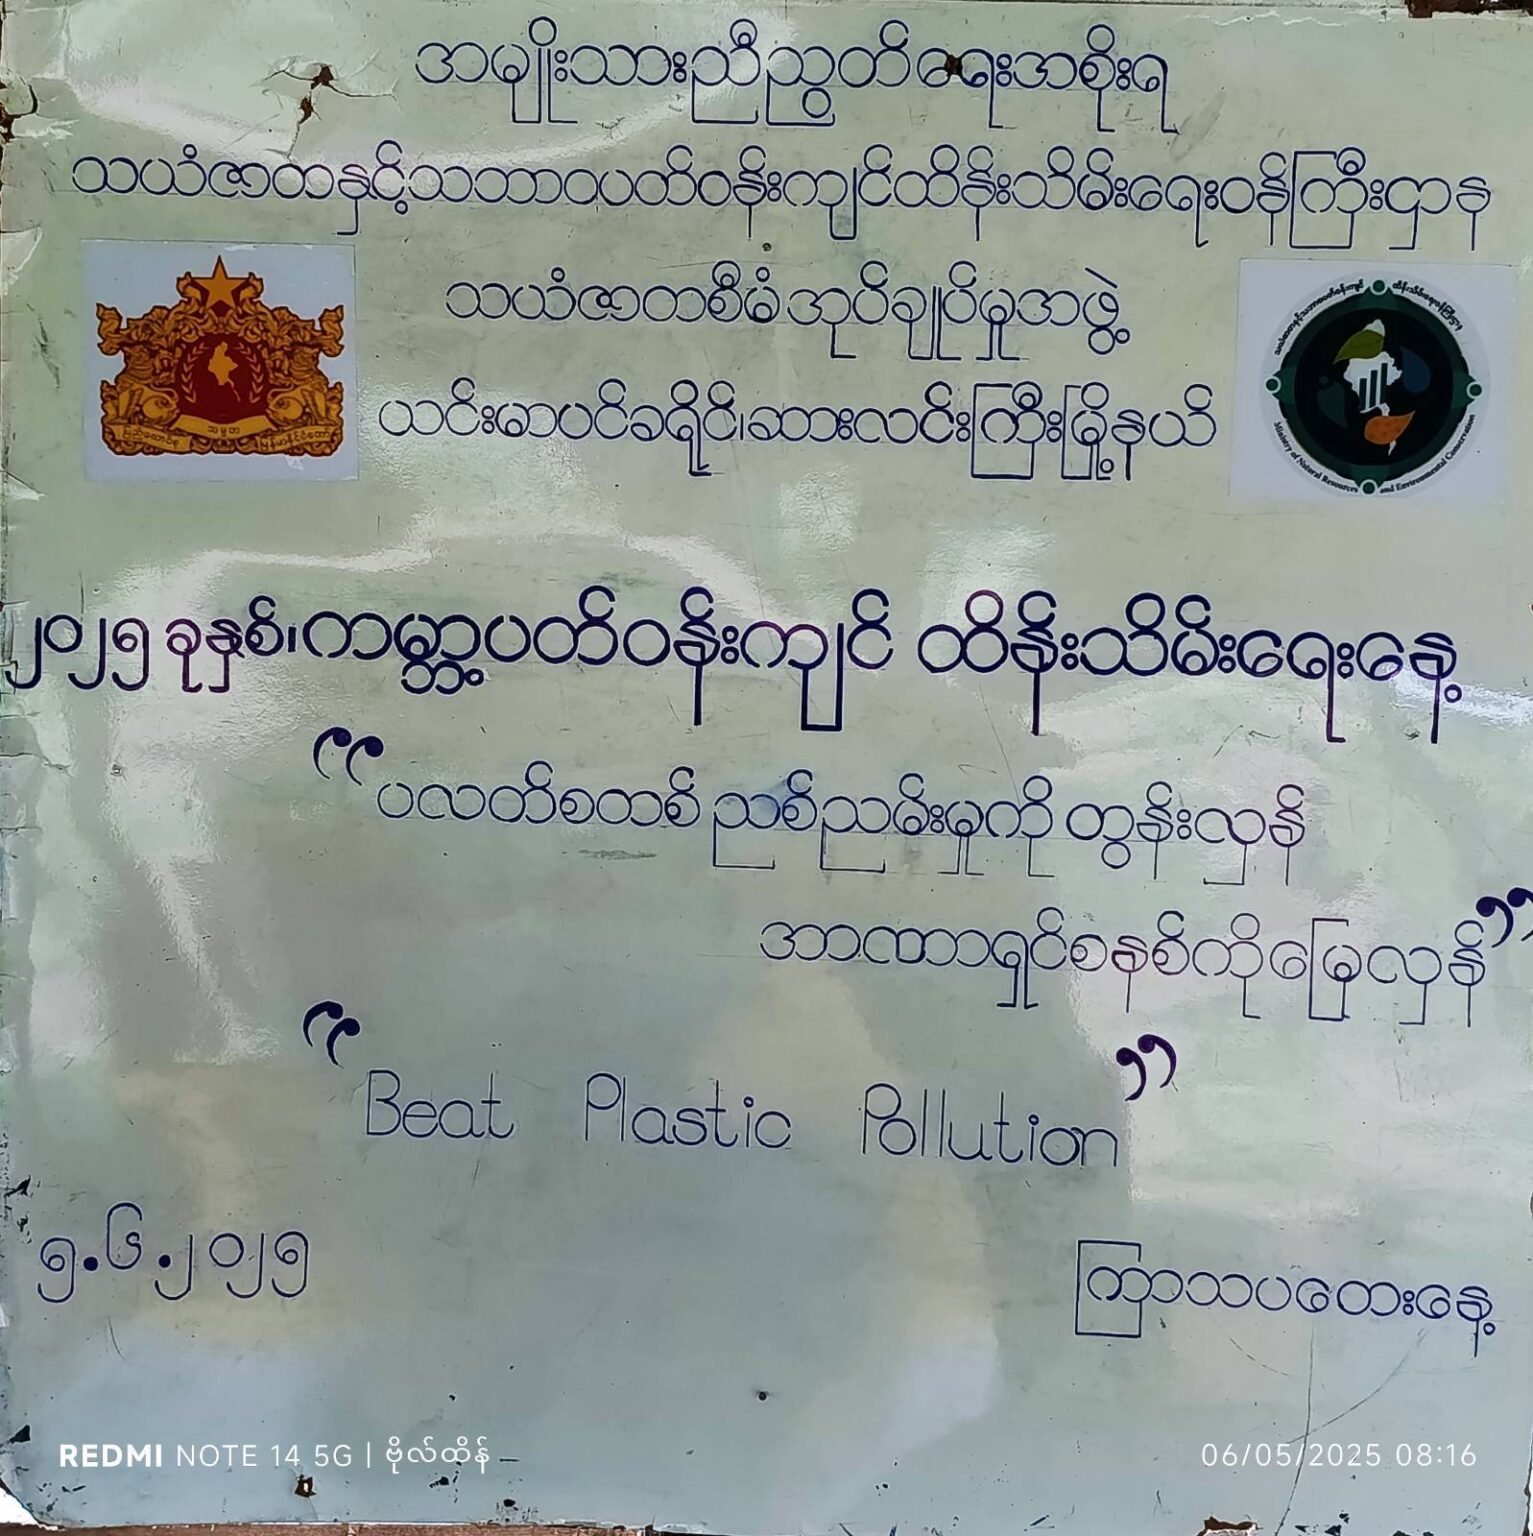 အမျိုးသားညီညွတ်ရေးအစိုးရ
သယံဇာတနှင့်သဘာဝပတ်ဝန်းကျင်ထိန်းသိမ်းရေးဝန်ကြီးဌာန
သယံဇာတစီမံအုပ်ချုပ်မှုအဖွဲ့
ယင်းမာပင်ခရိုင်၊ဆားလင်းကြီးမြို့နယ်
သမ္မတ
Ministry of Natural Resources and Environmental Conservation
၂၀၂၅ ခုနှစ်၊ကမ္ဘာ့ပတ်ဝန်းကျင် ထိန်းသိမ်းရေးနေ့
“ပလတ်စတစ် ညစ်ညမ်းမှုကို တွန်းလှန်
အာဏာရှင်စနစ်ကိုမြေလှန်”
“Beat Plastic Pollution”
၅.၆.၂၀၂၅
ကြာသပတေးနေ့
REDMI NOTE 14 5G | ဗိုလ်ထိန်
06/05/2025 08:16